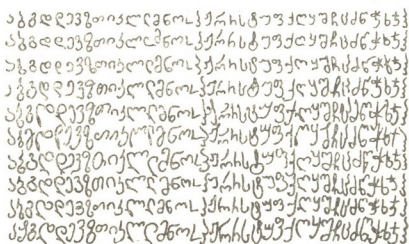 აბგდდევზთიკლლმნოპჟრრსტუფქღყშჩცძწჭხჯჰ
აბგდდევზთიკლლმნოპჟრრსტუფქღყშჩცძწჭხჯჰ
აბგდდევზთიკლლმნოპჟრრსტუფქღყშჩცძწჭხჯჰ
აბგდდევზთიკლლმნოპჟრრსტუფქღყშჩცძწჭხჯჰ
აბგდდევზთიკლლმნოპჟრრსტუფქღყშჩცძწჭხჯჰ
აბგდდევზთიკლლმნოპჟრრსტუფქღყშჩცძწჭხჯჰ
აბგდდევზთიკლლმნოპჟრრსტუფქღყშჩცძწჭხჯჰ
აბგდდევზთიკლლმნოპჟრრსტუფქღყშჩცძწჭხჯჰ
აბგდდევზთიკლლმნოპჟრრსტუფქღყშჩცძწჭხჯჰ
აბგდდევზთიკლლმნოპჟრრსტუფქღყშჩცძწჭხჯჰ